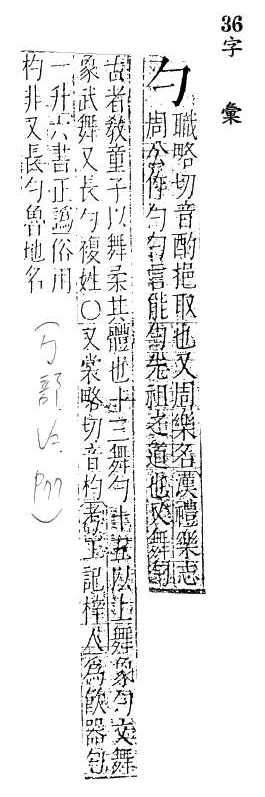 36
字彙
勺
職略切音酌挹取也又周樂名漢禮樂志
周公作勺勺言能勺先祖之道也又舞勺
古者敎童子以舞柔其體也十三舞勺十五以上舞象勺文舞
象武舞又長勺複姓〇又裳略切音杓考工記梓人為飮器勺
一升六書正譌俗用
杓非又長勺魯地名
(勹部 P77)